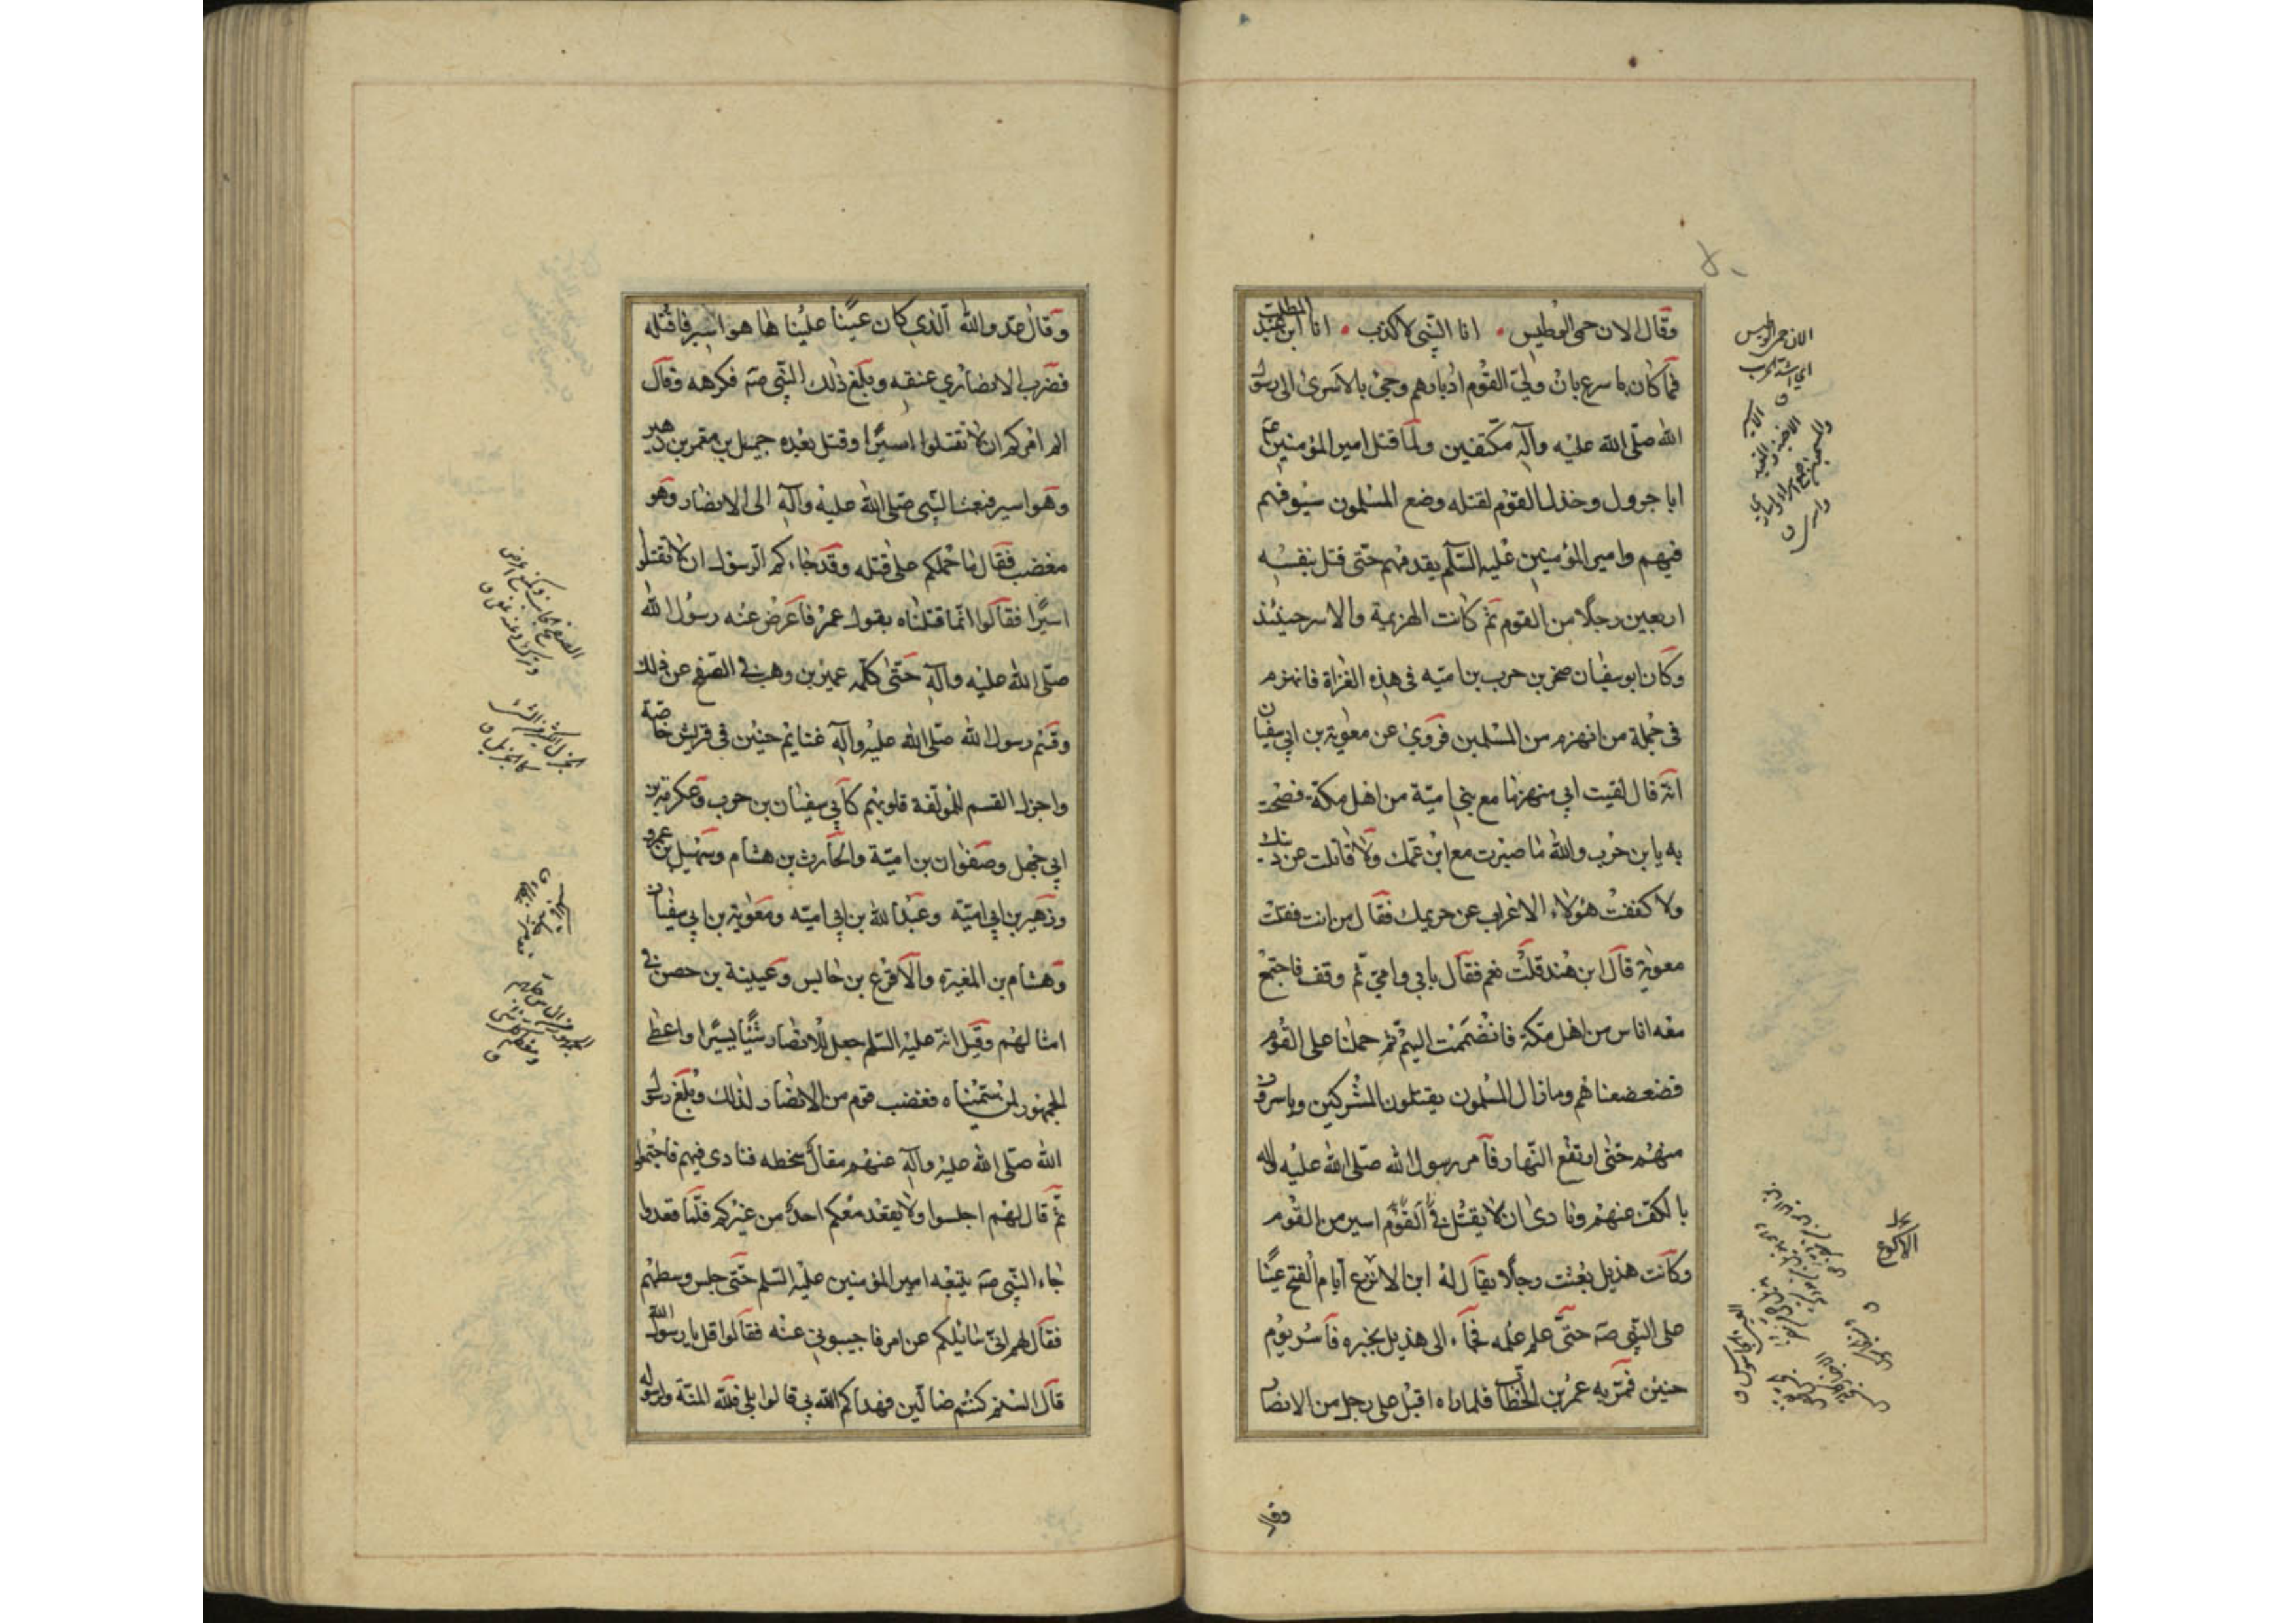 وقال الان حمى الوطيس انا النبي لا كذب انا ابن عبد المطلب
فما كان باسرع بان ولى القوم ادبارهم وجئ بالاسرى الى رسول
الله صلى الله عليه وآله مكتفين ولما قتل امير المؤمنين ع
ابا جرول وخذل القوم لقتله وضع المسلمون سيوفهم
فيهم وامير المؤمنين عليه السلم يقدمهم حتى قتل بنفسه
اربعين رجلا من القوم ثم كانت الهزيمة والاسر حينئذ
وكان ابو سفيان صخر بن حرب بن اميه في هذه الغزاة فانهزم
في جملة من انهزم من المسلمين فروي عن معوية بن ابي سفيان
انه قال لقيت ابي منهزما مع بني امية من اهل مكة فصحت
به يا بن حرب والله ما صبرت مع ابن عمك ولا قاتلت عن دينك
ولا كففت هؤلاء الاعراب عن حريمك فقال من انت فقلت
معوية قال ابن هند قلت نعم فقال بابي وامي ثم وقف فاجتمع
معه اناس من اهل مكة فانضممت اليهم ثم حملنا على القوم
فضعضعناهم وما زال المسلمون يقتلون المشركين وياسرون
منهم حتى ارتفع النهار فأمر رسول الله صلى الله عليه وآله
بالكف عنهم ونادى ان لا يقتل في القوم اسير من القوم
وكانت هذيل بعثت رجلا يقال له ابن الانزع ايام الفتح عينا
على النبي صه حتى علم علمه فجاء الى هذيل بخبره فأسر يوم
حنين فمر به عمر بن الخطاب فلما راه اقبل على رجل من الانصار
وقال
الان حمى الوطيس
اي اشتد الحرب
الاكوع
وقال عدو الله الذي كان عينا علينا ها هو اسير فاقتله
فضرب الانصاري عنقه وبلغ ذلك النبي صه فكرهه وقال
الم امركم ان لا تقتلوا اسيرا وقتل بعده جميل بن معمر بن زهير
وهو اسير فبعث النبي صلى الله عليه وآله الى الانصار وهو
مغضب فقال ما حملكم على قتله وقد جاءكم الرسول ان لا تقتلوا
اسيرا فقالوا انما قتلناه بقول عمر فاعرض عنه رسول الله
صلى الله عليه وآله حتى كلمه عمير بن وهب في الصفح عن ذلك
وقسم رسول الله صلى الله عليه وآله غنايم حنين في قريش خاصة
واجزل القسم للمؤلفة قلوبهم كأبي سفيان بن حرب وعكرمة بن
ابي جهل وصفوان بن امية والحارث بن هشام وسهيل بن عمرو
وزهير بن ابي اميه وعبد الله بن ابي اميه ومعوية بن ابي سفيان
وهشام بن المغيره والاقرع بن حابس وعيينة بن حصن في
امثالهم وقيل انه عليه السلم جعل للانصار شيئا يسيرا واعطى
الجمهور لمن سميناه فغضب قوم من الانصار لذلك وبلغ رسول
الله صلى الله عليه وآله عنهم مقال سخطه فنادى فيهم فاجتمعوا
ثم قال لهم اجلسوا ولا يقعد معكم احد من غيركم فلما قعدوا
جاء النبي صه يتبعه امير المؤمنين عليه السلم حتى جلس وسطهم
فقال لهم اني سائلكم عن امر فاجيبوني عنه فقالوا قل يا رسول الله
قال الستم كنتم ضالين فهداكم الله بي قالوا بلى فلله المنة ولرسوله